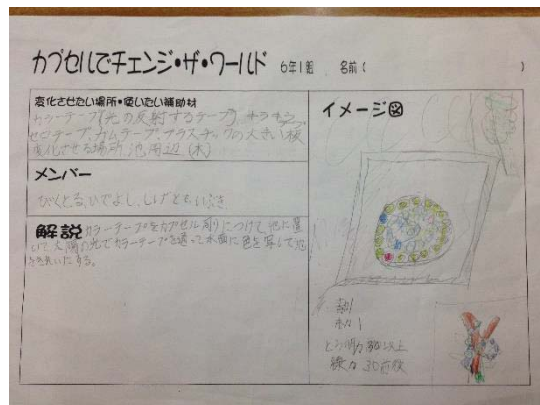 カプセルでチェンジ・ザ・ワールド 6年1組 名前( )
変化させたい場所・使いたい補助材
カラーテープ(光の反射するテープ) キラキラ
セロテープ、ガムテープ、プラスチックの大きい板
変化させる場所 池周辺(木)
メンバー
びくとる、ひでよし、しげとも、いぶき
解説 カラーテープをカプセル
いて、太陽の光でカラーテープを通って水面に色を写して池
をきれいにする。
イメージ図